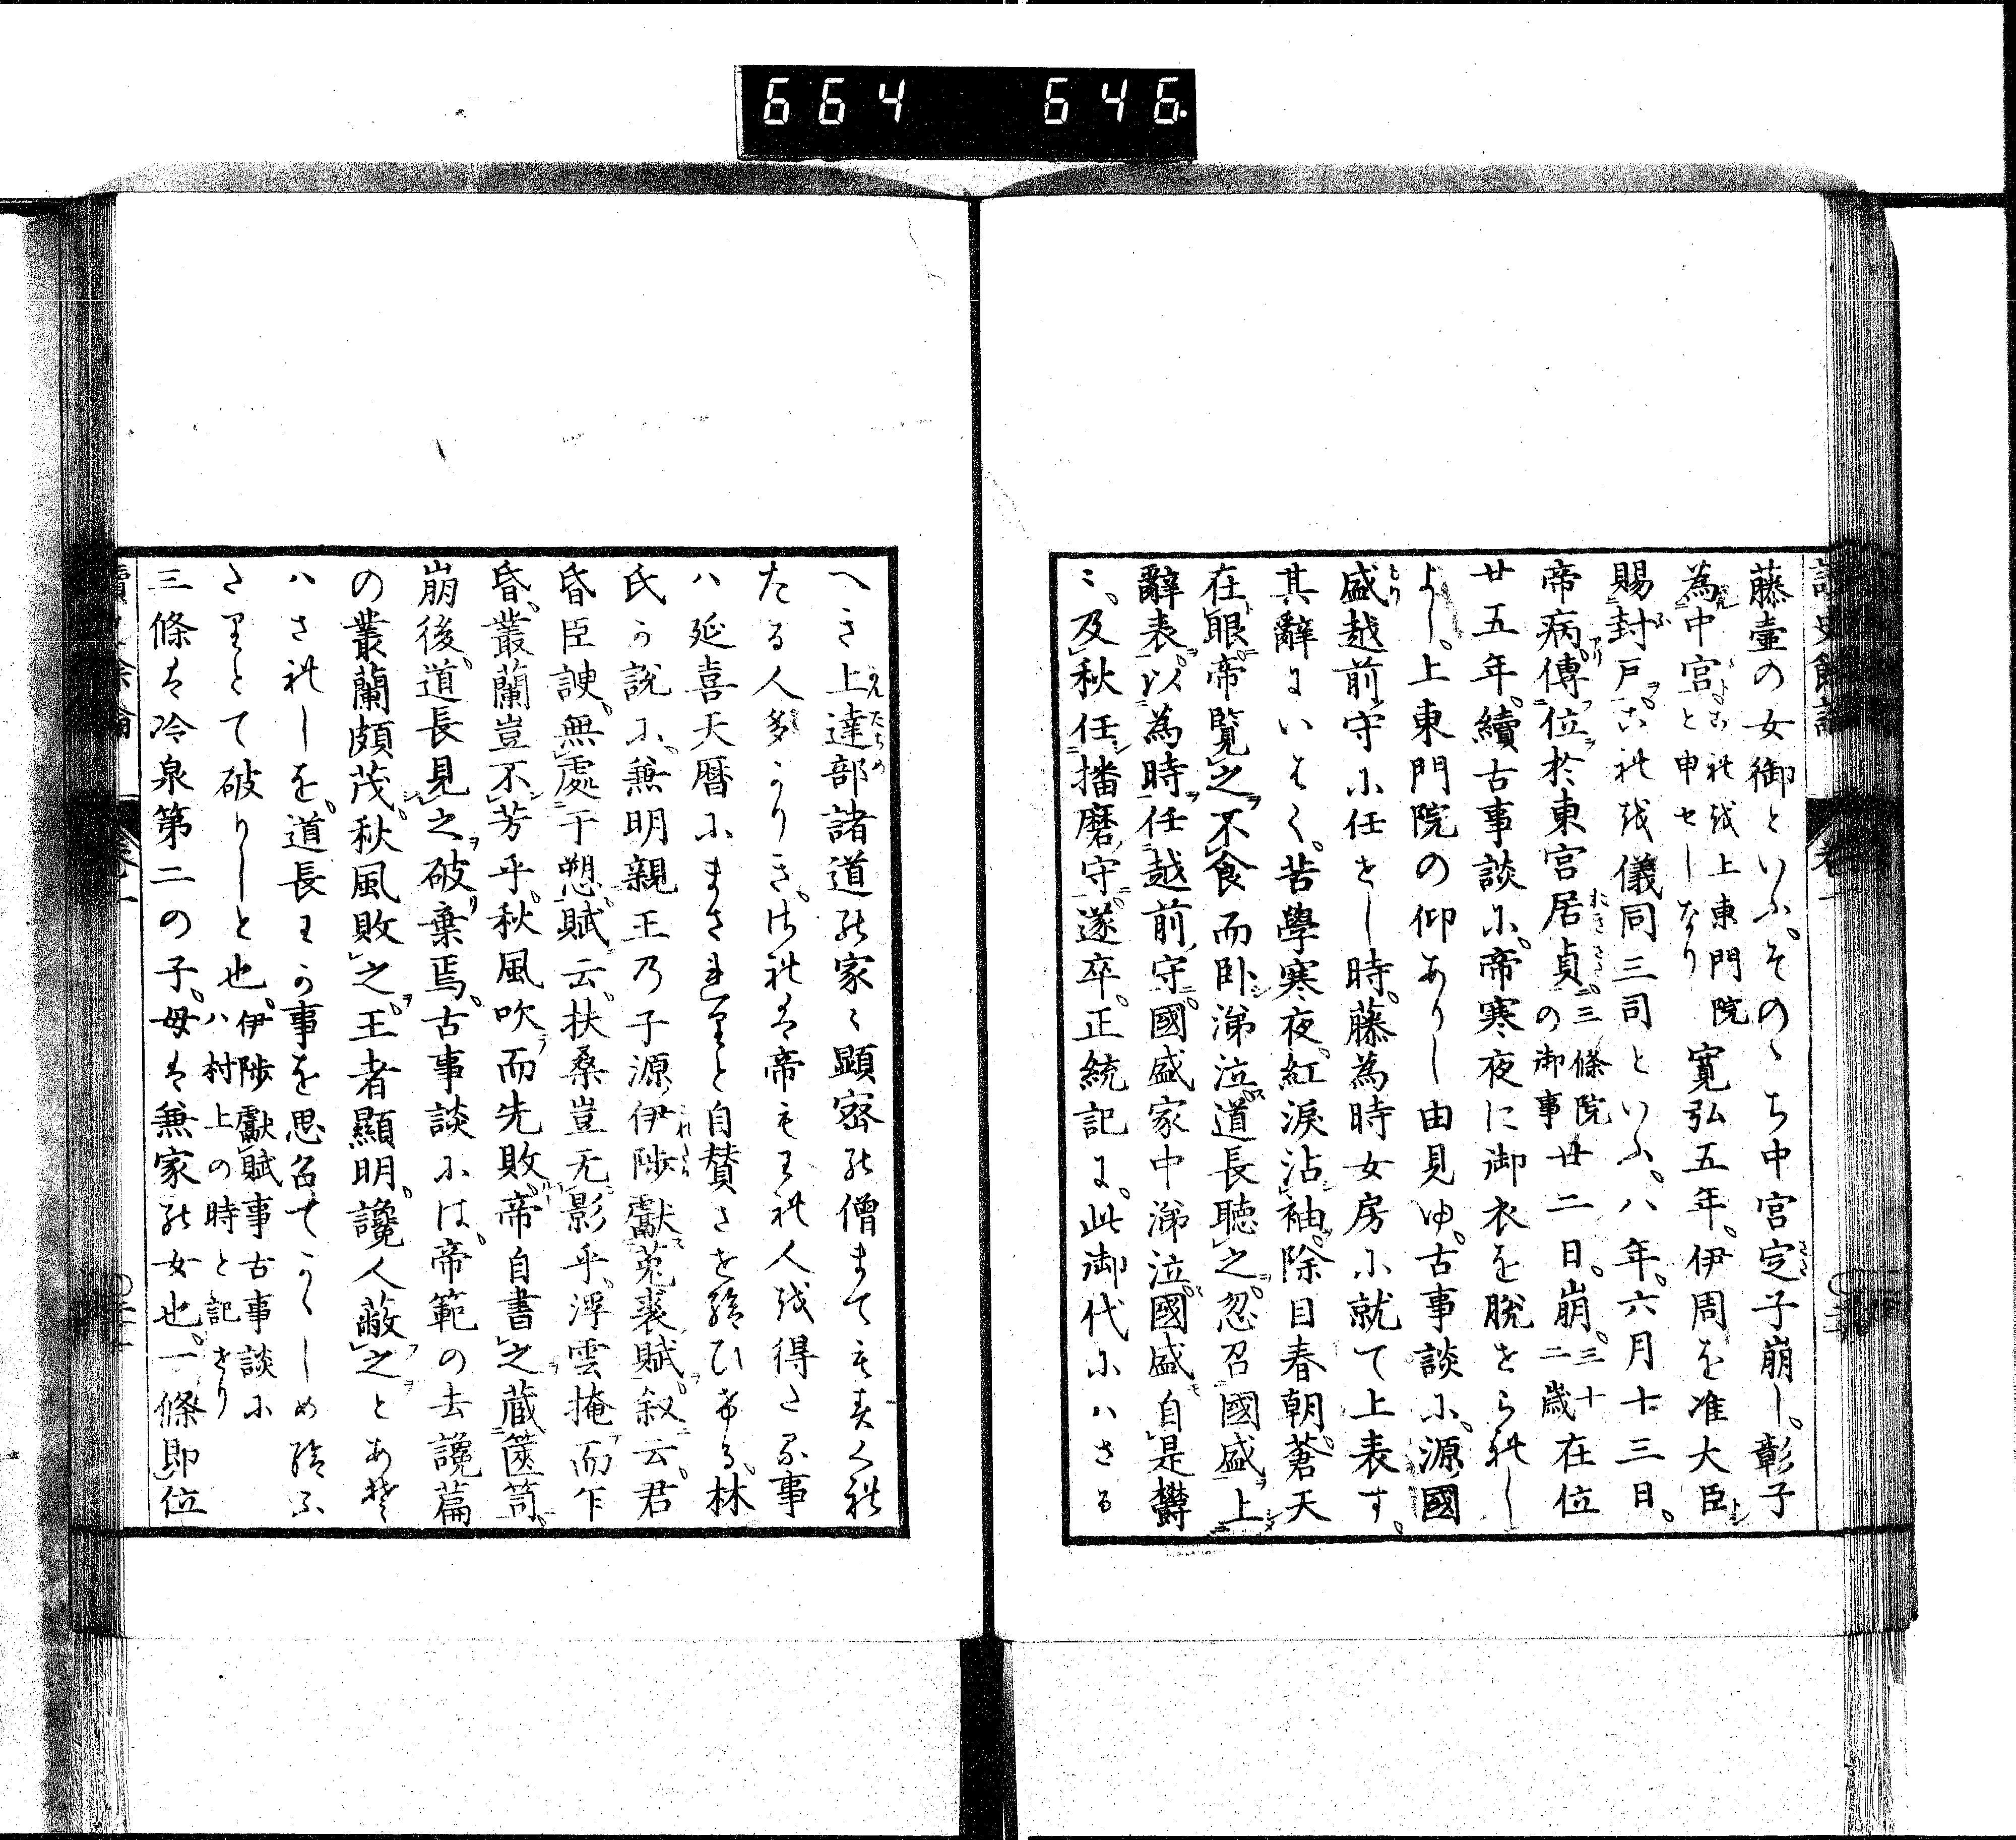 664 646
讀史餘論 卷一
藤壷の女御といふ。そのゝち中宮定子崩し。彰子
為中宮これ越上東門院と申セしなり寛弘五年。伊周を准大臣
賜封戸。これ越儀同三司といふ。八年。六月十三日。
帝病。傳位於東宮居貞。三條院の御事廿二日。崩。三十二歳在位
廿五年。續古事談に。帝寒夜に御衣を脱せられし
よし。上東門院の仰ありし由見ゆ。古事談に。源國
盛越前守に任せし時。藤為時女房に就て上表す。
其辭にいはく。苦學寒夜。紅涙沾袖。除目春朝。蒼天
在眼。帝覧之。不食而卧涕泣。道長聴之。忽召國盛上
辭表。以為時任越前守。國盛家中涕泣。國盛自是欝
〻。及秋任播磨守。遂卒。正統記に。此御代にハさる
へき上達部諸道の家〻顕密の僧まても春くれ
たる人多かりき。され者帝もわれ人越得たる事
ハ延喜天暦にまされりと自賛させ給ひける。林
氏の説に。兼明親王乃子源伊陟獻菟裘賦。叙云。君
昏臣諛。無處于愬。賦云。扶桑豈无影乎。浮雲掩而乍
昏。叢蘭豈不芳乎。秋風吹而先敗。帝自書之蔵篋笥。
崩後。道長見之。破棄焉。古事談には。帝範の去讒篇
の叢蘭頗茂。秋風敗之。王者顯明。讒人蔽之とあそ
ハされしを。道長わか事を思召てかくしめ給ふ
さりとて破りしと也。伊陟獻賦事古事談にハ村上の時と記せり
三條者冷泉第二の子。母者兼家の女也。一條即位